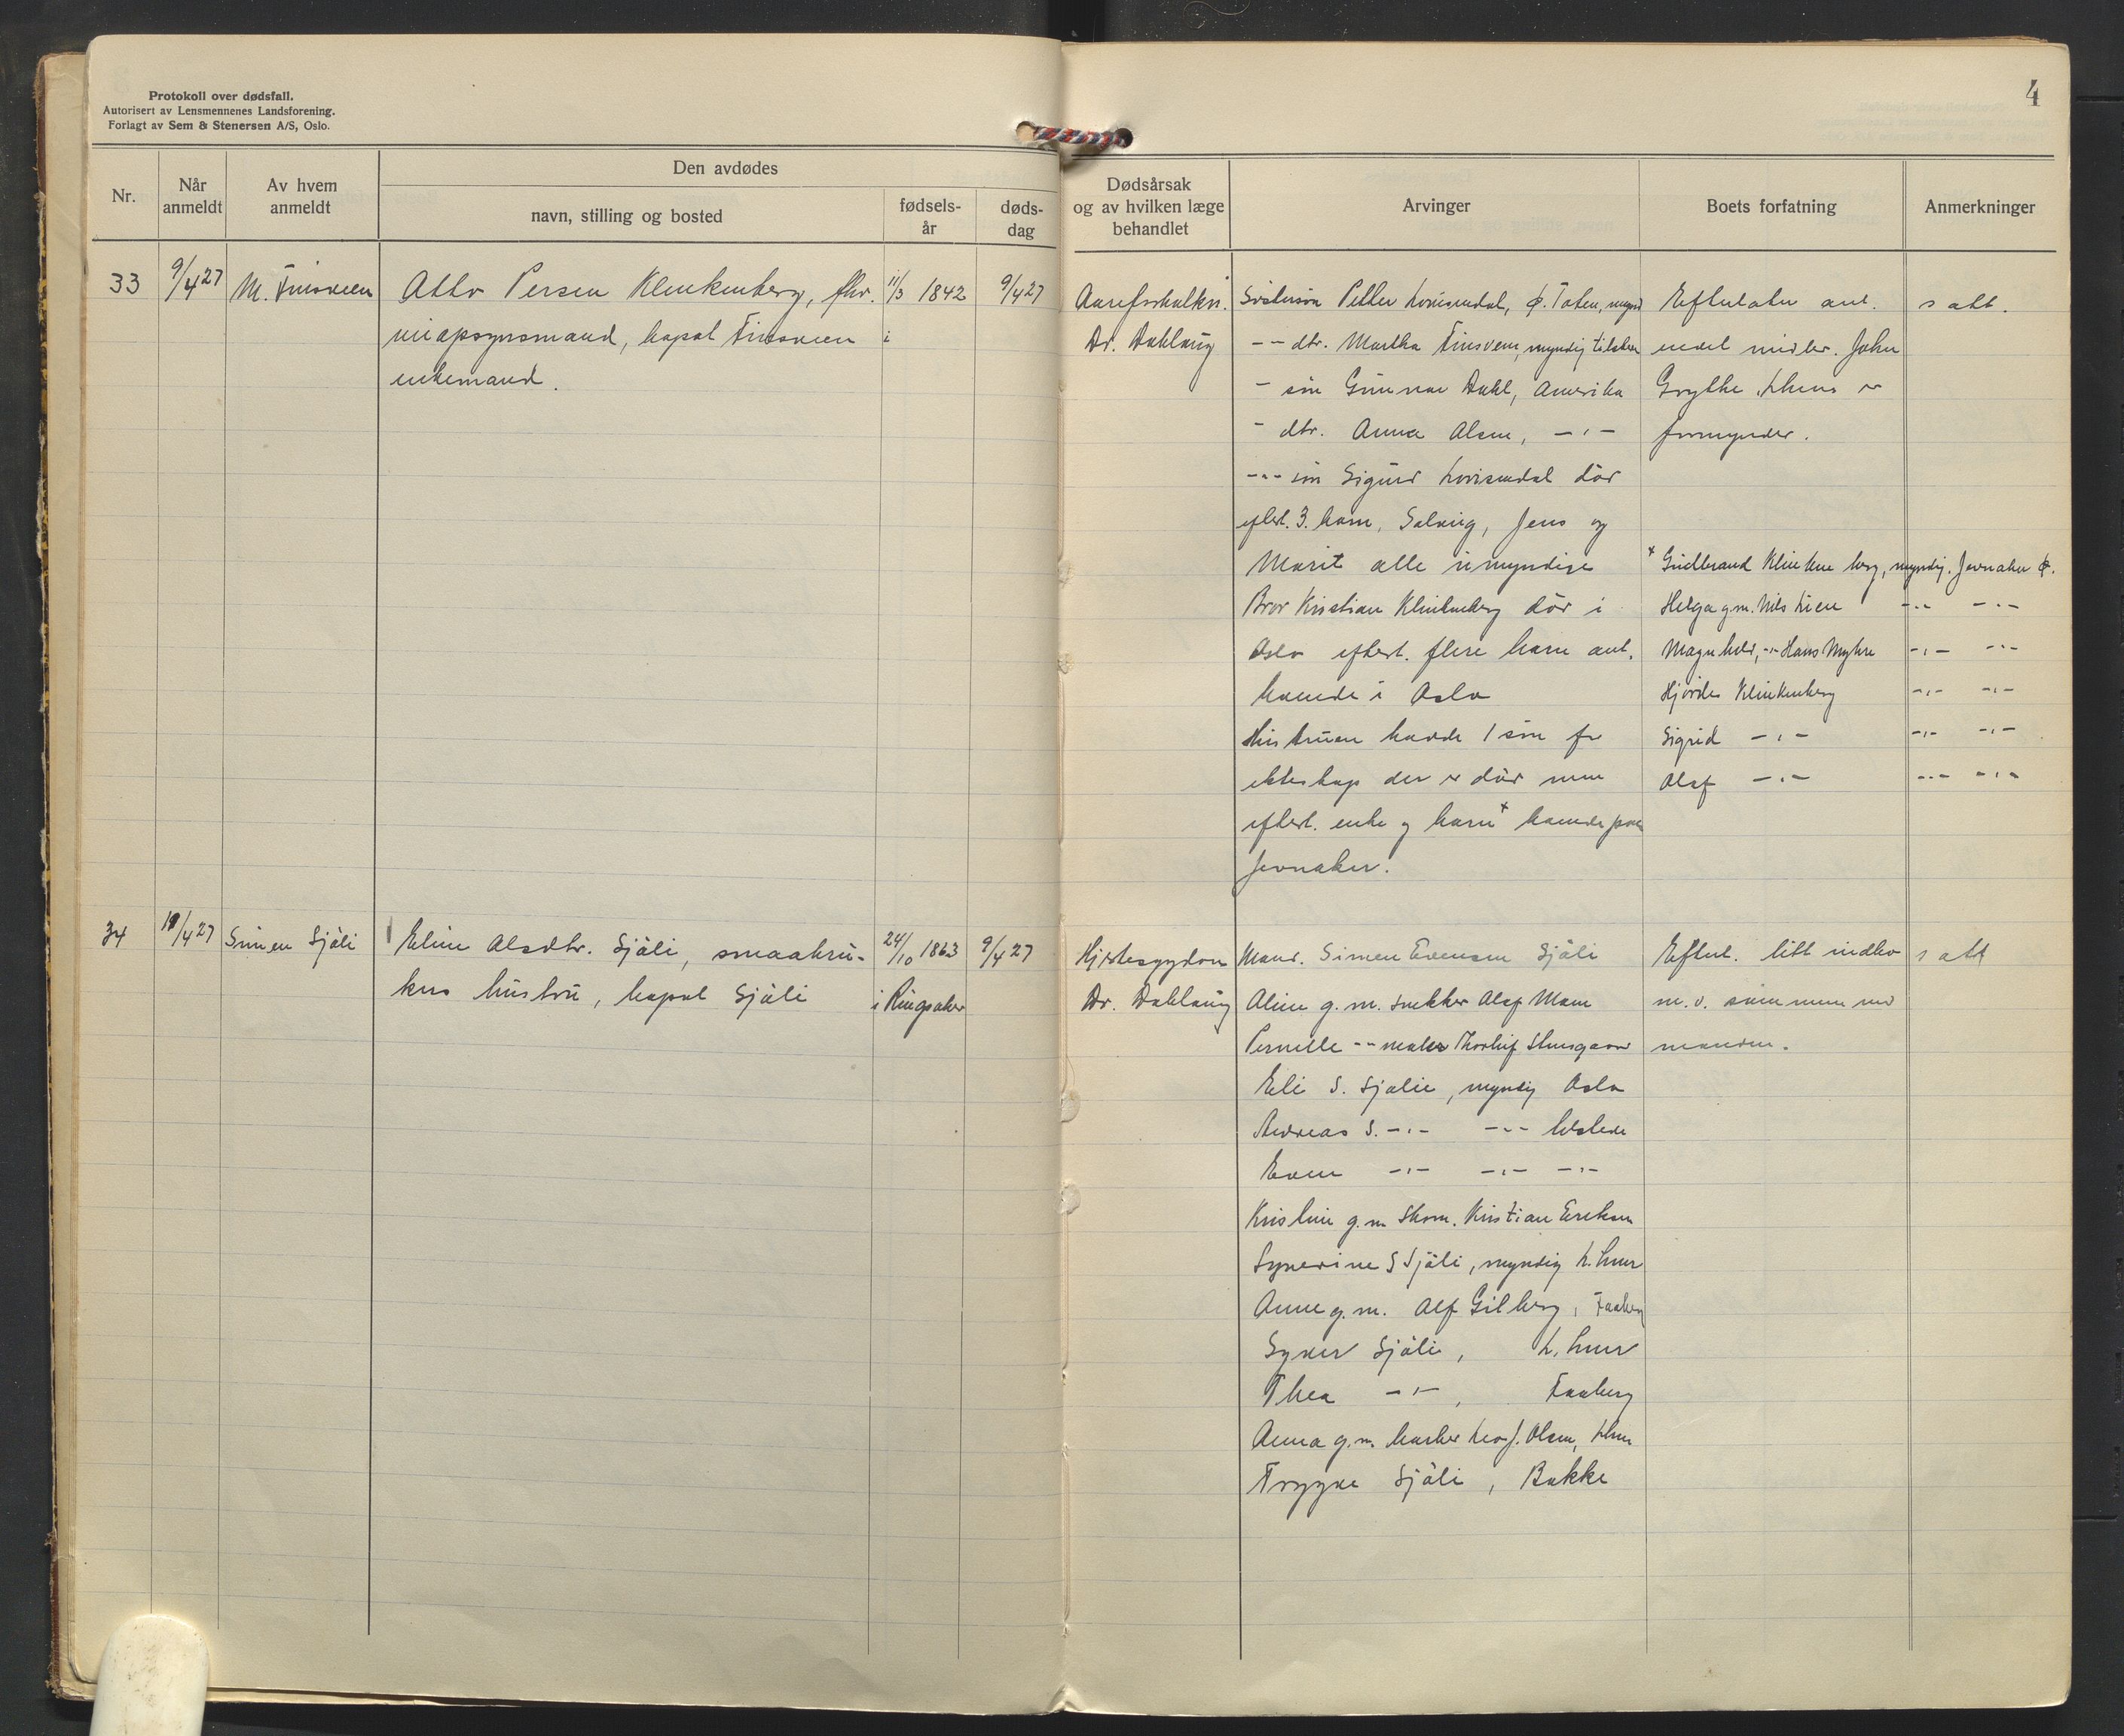 Protokoll over dødsfall.
Autorisert av Lensmennenes Landsforening.
Forlagt av Sem & Stenersen A/S, Oslo.
4
Nr.
Når anmeldt
Av hvem anmeldt
Den avdødes
navn, stilling og bosted
fødsels-år
døds-dag
Dødsårsak og av hvilken læge behandlet
Arvinger
Boets forfatning
Anmerkninger
33 9/4 27 M. Finsveen
Otto Persen Klinkenberg, fhv. 11/3 1842 9/4 27
opsynsmand, bopæl Finsveen i
enkemand.
Aareforkalkn.
Dr. Dahlaug
Søstersøn Petter Lovisendal, Ø. Toten, mynd
-"- dtr. Martha Finsveen, myndig tilstede
- søn Gunnar Dahl, Amerika
- dtr. Anna Olsen, -"-
-"- søn Sigurd Lovisendal död
efterl. 3. barn, Solveig, Jens og
Marit alle umyndige
Bror Kristian Klinkenberg död i
Oslo efterl. flere barn ant.
boende i Oslo
Hustruen hadde 1 sön før
ekteskap der er död men
efterl. enke og barn x boende paa
Jevnaker.
Efterlater ant.
endel midler. John
Grytte, Lhmr er
formynder.
x Gudbrand Klinkenberg, myndig. Jevnaker Ø.
Helga g.m. Nils Lien -"- -"-
Magnhild, -"- Hans Myhre -"- -"-
Hjördis Klinkenberg -"- -"-
Sigrid -"- -"- -"-
Olaf -"- -"- -"-
s att.
34 19/4 27 Simen Sjöli
Eline Olsdtr. Sjöli, smaabru- 24/10 1863 9/4 27
kers hustru, bopæl Sjöli i Ringsaker
Hjertesygdom
Dr. Dahlaug
Mand. Simen Evensen Sjöli
Oline g.m. snekker Olaf Moen
Pernille -"- maler Thorleif Stensgaard
Eli S. Sjølie, myndig Oslo
Andreas S. -"- -"- tilstede
Even -"- -"- -"-
Kristine g.m Skom. Kristian Eriksen
Syverine S Sjöli, myndig L.hmr
Anne g.m. Alf Gilberg, Faaberg
Syver Sjöli, L.hmr
Thea -"-, Faaberg
Anna g.m. Leo J. Olsen, Lhmr
Trygve Sjöli, Bakke
Efterl. litt indbo
m.v. sammen med
manden.
s att